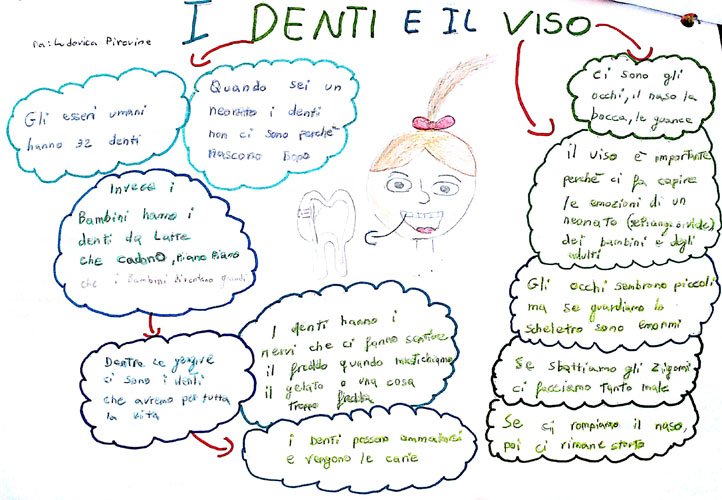 I DENTI E IL VISO
Da: Ludovica Pirovine
Gli esseri umani
hanno 32 denti
Quando sei un
neonato i denti
non ci sono perchè
nascono Dopo
Invece i
Bambini hanno i
denti da Latte
che cadono, Piano Piano
che i Bambini diventano grandi
Dentro le gengive
ci sono i denti
che avremo per tutta
la vita
I denti hanno i
nervi che ci fanno sentire
il freddo quando mastichiamo
il gelato o una cosa
troppo fredda
i Denti possono ammalarsi
e vengono le carie
ci sono gli
occhi, il naso la
bocca, le guance
il viso è importante
perchè ci fa capire
le emozioni di un
neonato (se piange o ride)
dei bambini e degli
adulti
Gli occhi sembrono piccoli
ma se guardiamo lo
scheletro sono enormi
Se sbattiamo gli Zigomi
ci facciamo tanto male
Se ci rompiamo il naso,
poi ci rimane storto